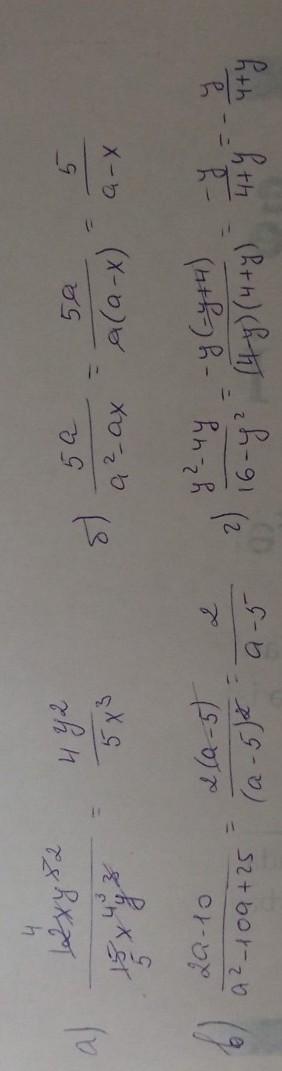 а) 12xy⁵ ² / 15x⁴y³ = 4y² / 5x³ (4, 5, 3)
б) 5a / a²-ax = 5a / a(a-x) = 5 / a-x
в) 2a-10 / a²-10a+25 = 2(a-5) / (a-5)² = 2 / a-5
г) y²-4y / 16-y² = -y(-y+4) / (4-y)(4+y) = -y / 4+y = - y / 4+y